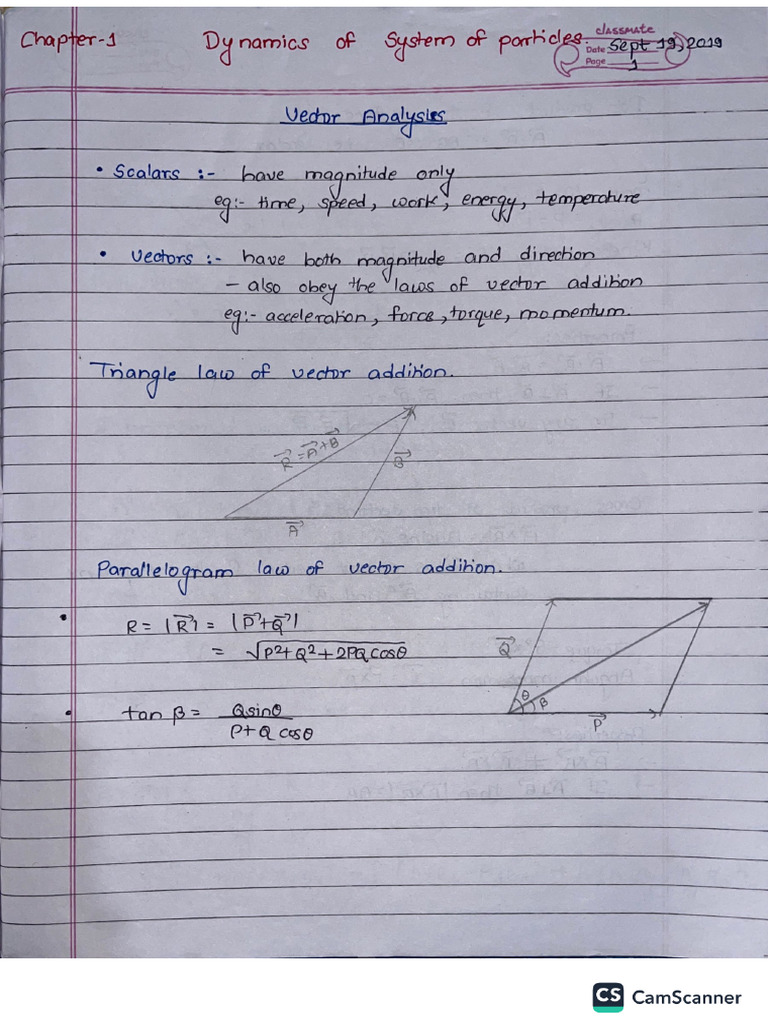 Chapter-1 Dynamics of System of particles.
classmate
Date Sept 19, 2019
Page 1
Vector Analysis
• Scalars :- have magnitude only
eg:- time, speed, work, energy, temperature
• Vectors :- have both magnitude and direction
- also obey the laws of vector addition
eg:- acceleration, force, torque, momentum.
Triangle law of vector addition.
R⃗ = A⃗ + B⃗
B⃗
A⃗
Parallelogram law of vector addition.
• R = |R⃗| = |P⃗+Q⃗|
= √(P²+Q²+2PQ cosθ)
Q⃗
θ
β
P⃗
• tan β = Qsinθ
P+Q cosθ
CS CamScanner